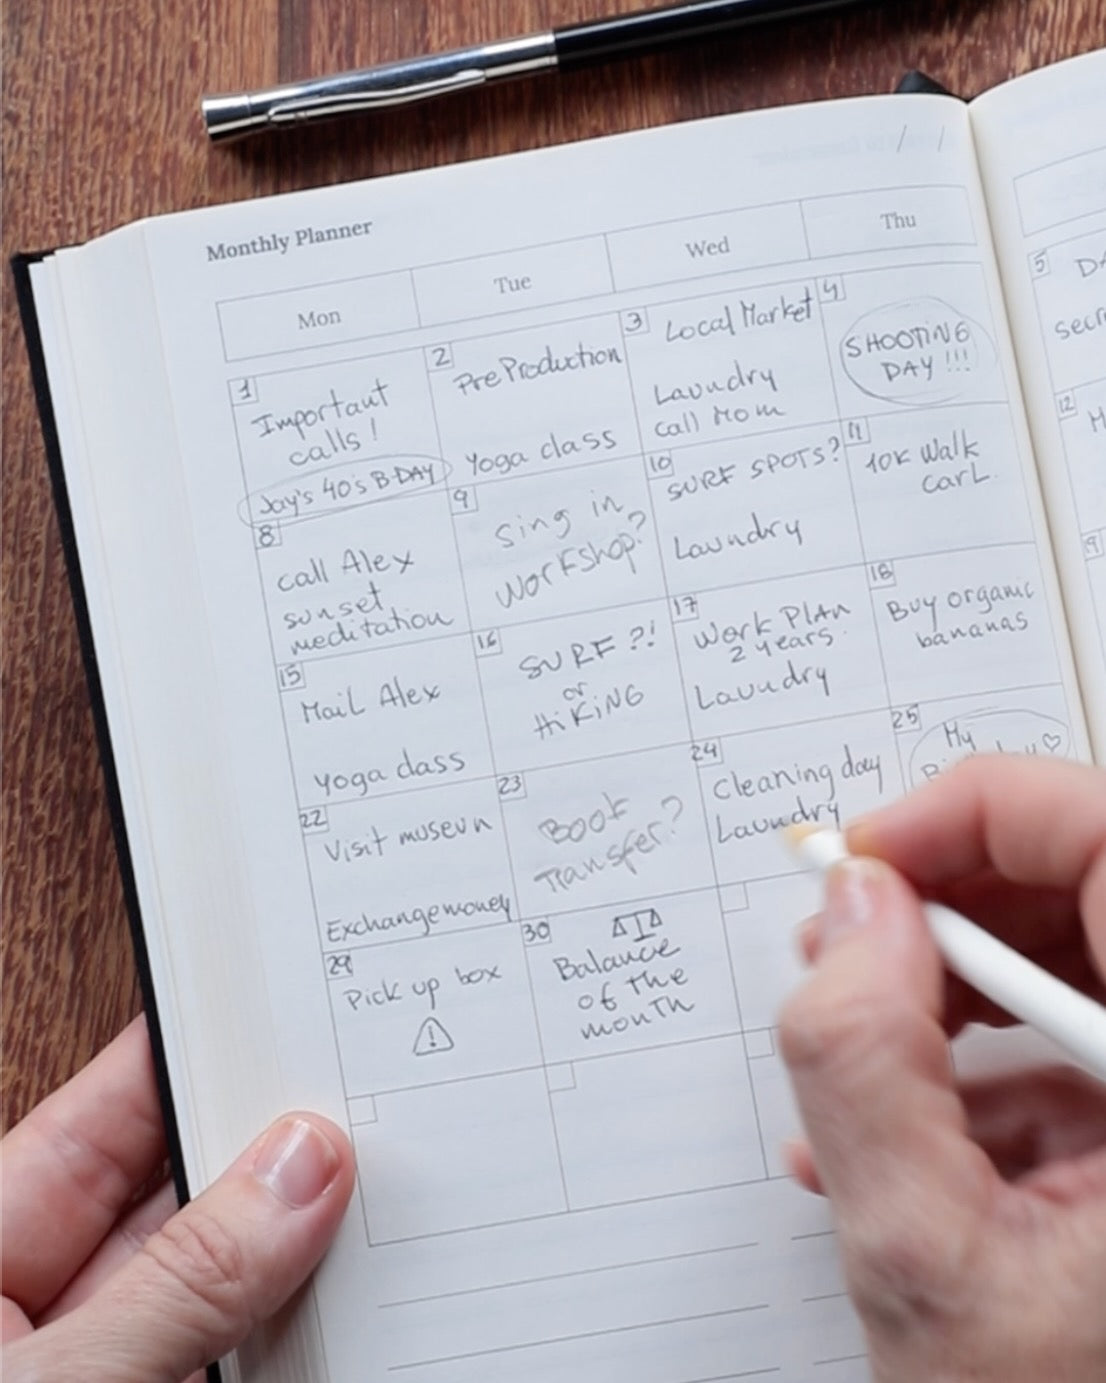 Monthly Planner
Mon
Tue
Wed
Thu
1
Important
calls!
Jay's 40's B-DAY
2
PreProduction
Yoga class
3
Local Market
Laundry
call Mom
4
SHOOTING
DAY !!!
5
8
call Alex
sunset
meditation
9
Sing in
Workshop?
10
SURF SPOTS?
Laundry
11
10K Walk
CarL.
12
15
Mail Alex
Yoga class
16
SURF ?!
or
HiKiNG
17
Work PLAN
2 years
Laundry
18
Buy organic
bananas
19
22
Visit museun
Exchange money
23
Book
Transfer?
24
Cleaning day
Laundry
25
My
29
Pick up box
!
30
Balance
of the
month